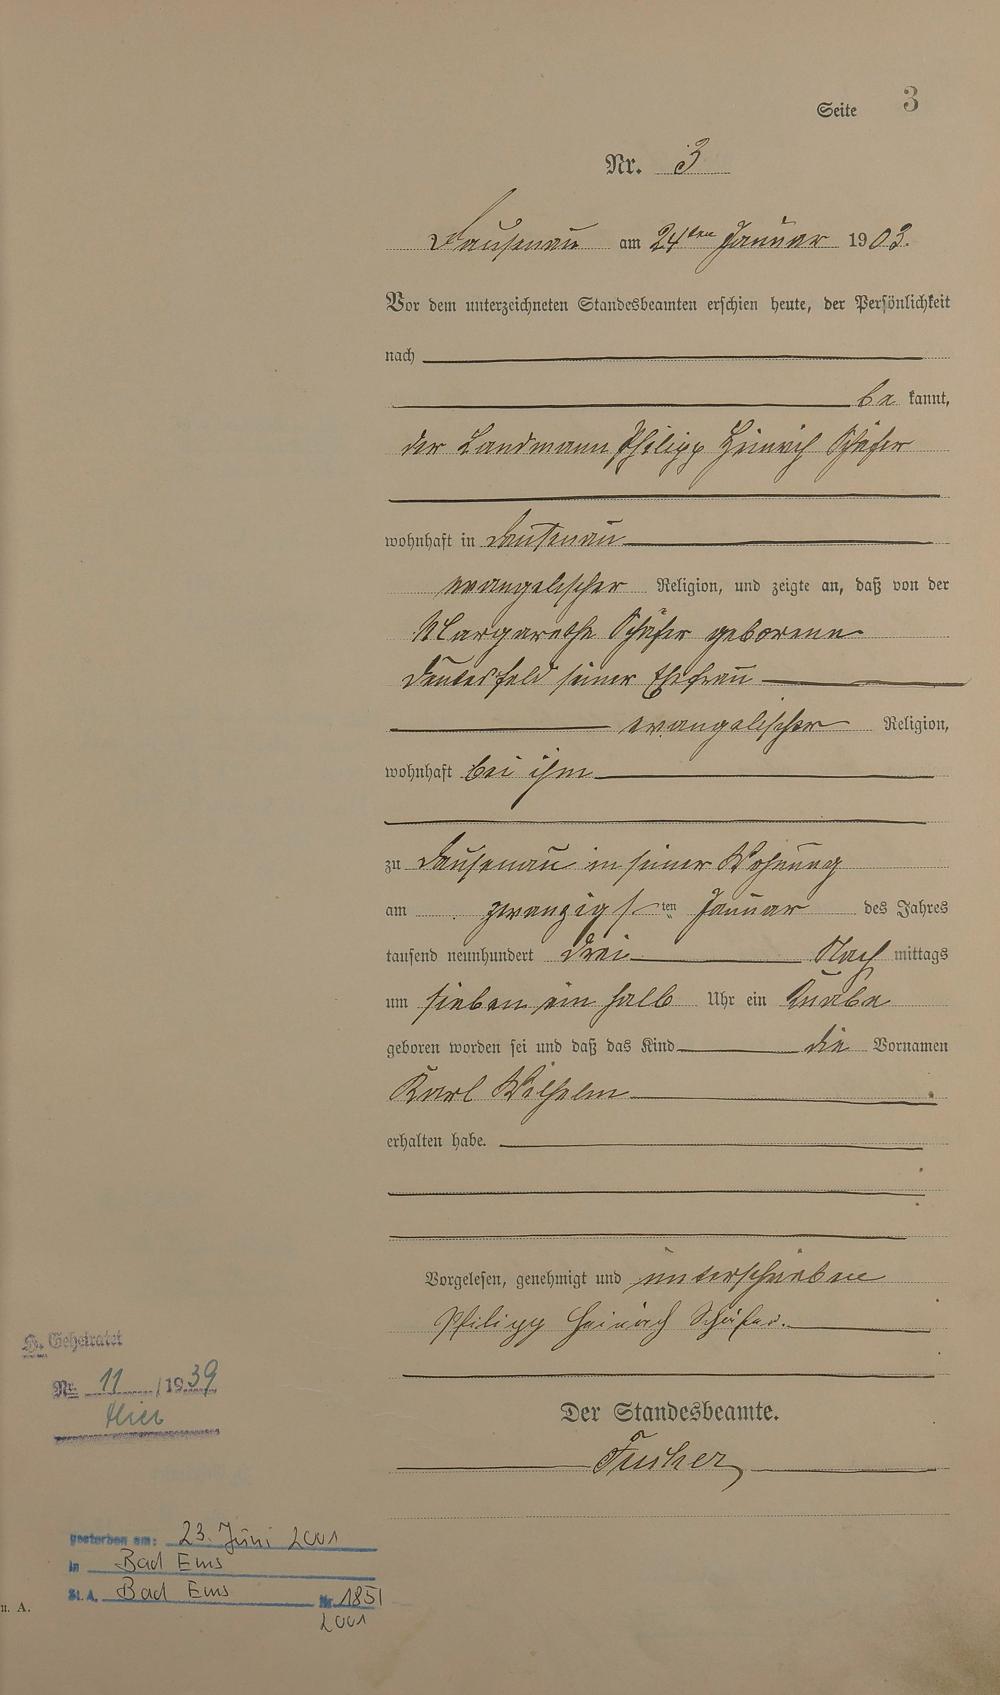 Seite 3
Nr. 3
Dausenau am 24ten Januar 1903.
Vor dem unterzeichneten Standesbeamten erschien heute, der Persönlichkeit
nach
be kannt,
der Landmann Philipp Heinrich Schäfer
wohnhaft in Dausenau
evangelischer Religion, und zeigte an, daß von der
Margarethe Schäfer geborene
seiner Ehefrau
evangelischer Religion,
wohnhaft bei ihm
zu Dausenau in seiner Wohnung
am zwanzigsten Januar des Jahres
tausend neunhundert drei Nach mittags
um sieben ein halb Uhr ein Knabe
geboren worden sei und daß das Kind die Vornamen
Karl Wilhelm
erhalten habe.
Vorgelesen, genehmigt und unterschrieben
Philipp Heinrich Schäfer.
Der Standesbeamte.
Geheiratet
Nr. 11 / 1939
Hier
gestorben am: 23. Juni 2001
in Bad Ems
St. A. Bad Ems Nr. 185/
2001
u. A.